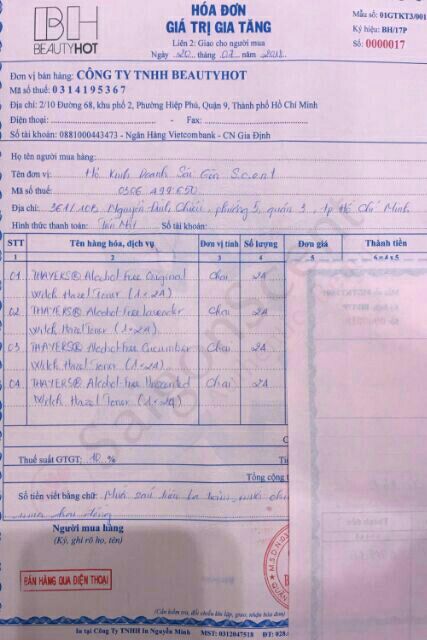 BH
BEAUTYHOT
HÓA ĐƠN
GIÁ TRỊ GIA TĂNG
Liên 2: Giao cho người mua
Ngày 20 tháng 07 năm 2018
Mẫu số: 01GTKT3/001
Ký hiệu: BH/17P
Số: 0000017
Đơn vị bán hàng: CÔNG TY TNHH BEAUTYHOT
Mã số thuế: 0314195367
Địa chỉ: 2/10 Đường 68, khu phố 2, Phường Hiệp Phú, Quận 9, Thành phố Hồ Chí Minh
Điện thoại: - Fax:
Số tài khoản: 0881000443473 - Ngân Hàng Vietcombank - CN Gia Định
Họ tên người mua hàng:
Tên đơn vị: Hộ Kinh Doanh Sài Gòn Scent
Mã số thuế: 0306499650
Địa chỉ: 361/10B Nguyễn Đình Chiểu, phường 5, quận 3, Tp Hồ Chí Minh
Hình thức thanh toán: Tiền Mặt Số tài khoản:
STT Tên hàng hóa, dịch vụ Đơn vị tính Số lượng Đơn giá Thành tiền
1 2 3 4 5 6=4x5
01 THAYERS® Alcohol-free Original Chai 24
Witch Hazel Toner (1×24)
02 THAYERS® Alcohol-free Lavender Chai 24
Witch Hazel Toner (1×24)
03 THAYERS® Alcohol-free Cucumber Chai 24
Witch Hazel Toner (1×24)
04 THAYERS® Alcohol-free Unscented Chai 24
Witch Hazel Toner (1×24)
Thuế suất GTGT: 10 %
Tổng cộng
Số tiền viết bằng chữ: Mười sáu triệu ba trăm
đồng
Người mua hàng
(Ký, ghi rõ họ, tên)
BÁN HÀNG QUA ĐIỆN THOẠI
SaigonScent
(Cần kiểm tra, đối chiếu khi lập, giao, nhận hóa đơn)
In tại Công Ty TNHH In Nguyễn Minh MST: 0312047518 ĐT: 028.